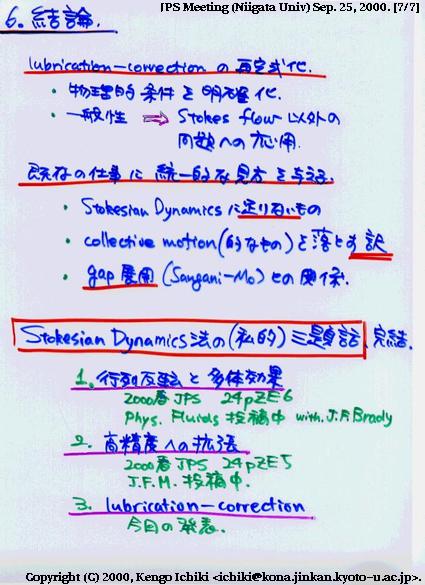 JPS Meeting (Niigata Univ) Sep. 25, 2000. [7/7]
6. 結論.
lubrication-correction の 再定式化.
・物理的 条件を 明確化.
・一般性 ⇒ Stokes flow 以外の
問題への 応用.
既存の仕事に 統一的な見方 を与える.
・Stokesian Dynamics に足りないもの
・collective motion(的なもの)を落とす訳
・gap 展開 (Sangani-Mo) との関係.
Stokesian Dynamics法の(私的)三題話 完結.
1. 行列反転と多体効果
2000春 JPS 24pZE6
Phys. Fluids 投稿中 with J.F.Brady
2. 高精度への拡張
2000春 JPS 24pZE5
J.F.M. 投稿中.
3. lubrication-correction
今回の発表.
Copyright (C) 2000, Kengo Ichiki <ichiki@kona.jinkan.kyoto-u.ac.jp>.